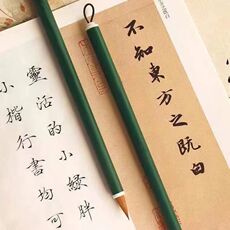 不知東方之既白
靈活的小綠胖
小楷行書均可